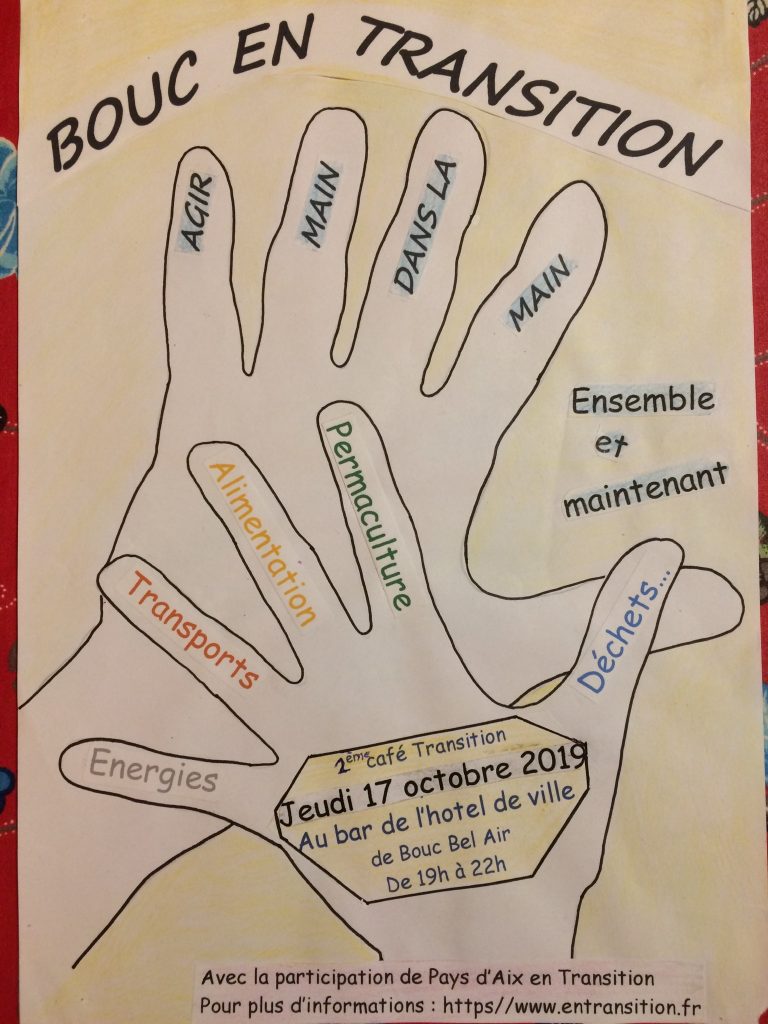 BOUC EN TRANSITION
AGIR
MAIN
DANS LA
MAIN
Ensemble
et
maintenant
Permaculture
Alimentation
Transports
Energies
Déchets...
2ème café Transition
Jeudi 17 octobre 2019
Au bar de l'hotel de ville
de Bouc Bel Air
De 19h à 22h
Avec la participation de Pays d'Aix en Transition
Pour plus d'informations : https//www.entransition.fr